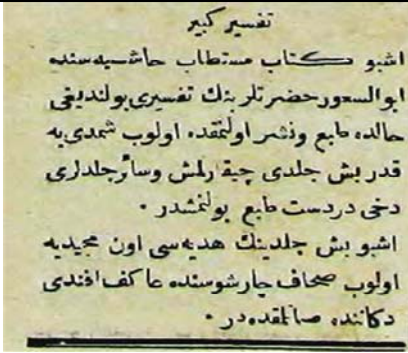 تفسير كبير
اشبو كتاب مستطاب حاشيه‌سنده
ابو السعود حضرتلرينك تفسيرى بولنديغى
حالده طبع ونشر اولنمقده اولوب شمدى‌يه
قدر بش جلدى چيقارلمش وسائر جلدلرى
دخى دردست طبع بولنمشدر ٠
اشبو بش جلدينك هديه‌سى اون مجيديه
اولوب صحاف چارشوسنده عاكف افندى
دكاننده صاتلمقده‌در ٠